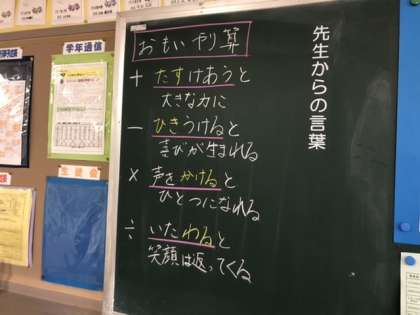 先生からの言葉
おもいやり算
+ たすけあうと
大きな力に
− ひきうけると
喜びが生まれる
× 声をかけると
ひとつになれる
÷ いたわると
笑顔は返ってくる
学年通信